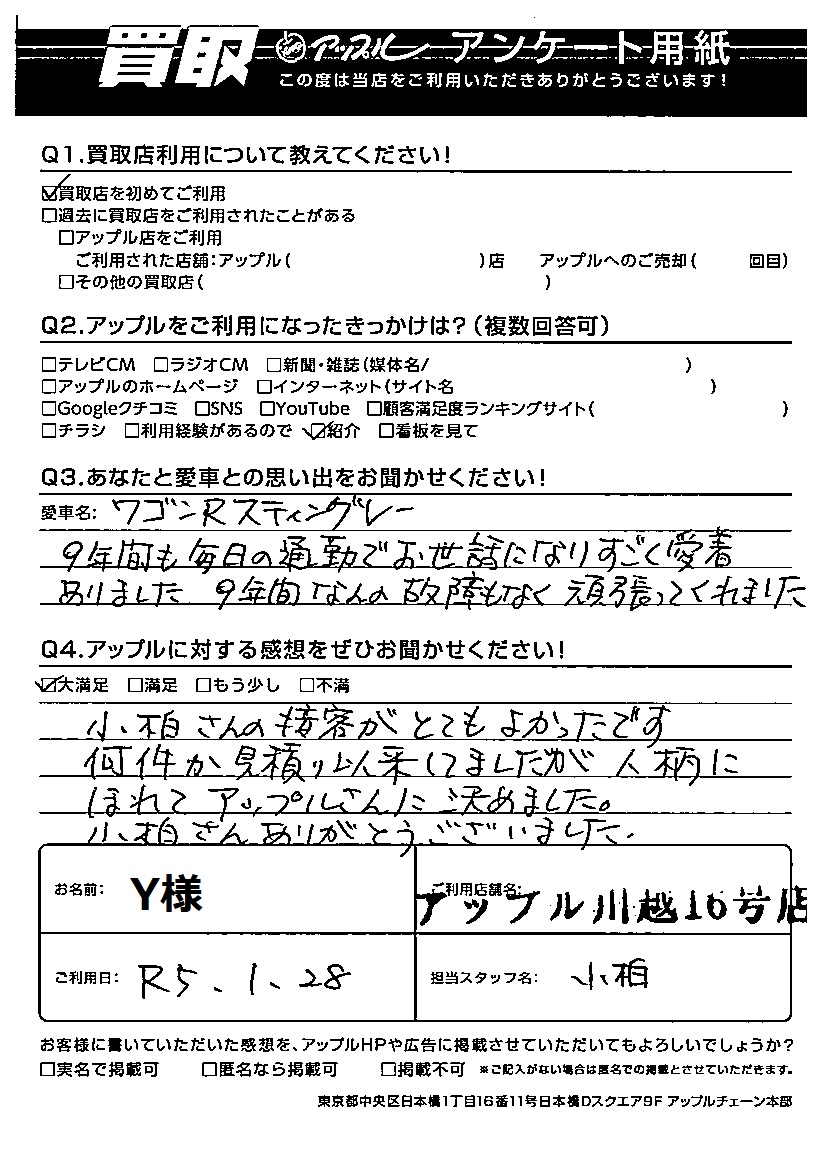 買取 アップル アンケート用紙
この度は当店をご利用いただきありがとうございます!
Q1.買取店利用について教えてください!
☑買取店を初めてご利用
□過去に買取店をご利用されたことがある
□アップル店をご利用
ご利用された店舗:アップル( )店 アップルへのご売却( 回目)
□その他の買取店( )
Q2.アップルをご利用になったきっかけは?(複数回答可)
□テレビCM □ラジオCM □新聞・雑誌(媒体名/ )
□アップルのホームページ □インターネット(サイト名 )
□Googleクチコミ □SNS □YouTube □顧客満足度ランキングサイト( )
□チラシ □利用経験があるので ☑紹介 □看板を見て
Q3.あなたと愛車との思い出をお聞かせください!
愛車名: ワゴンRスティングレー
9年間も毎日の通勤でお世話になりすごく愛着
ありました 9年間なんの故障もなく頑張ってくれました
Q4.アップルに対する感想をぜひお聞かせください!
☑大満足 □満足 □もう少し □不満
小柏さんの接客がとてもよかったです
何件か見積り以来してましたが人柄に
ほれてアップルさんに決めました。
小柏さんありがとうございました.
お名前: Y様
ご利用店舗名: アップル川越16号店
ご利用日: R5、1、28
担当スタッフ名: 小柏
お客様に書いていただいた感想を、アップルHPや広告に掲載させていただいてもよろしいでしょうか?
□実名で掲載可 □匿名なら掲載可 □掲載不可 ※ご記入がない場合は匿名での掲載とさせていただきます。
東京都中央区日本橋1丁目16番11号日本橋Dスクエア9F アップルチェーン本部